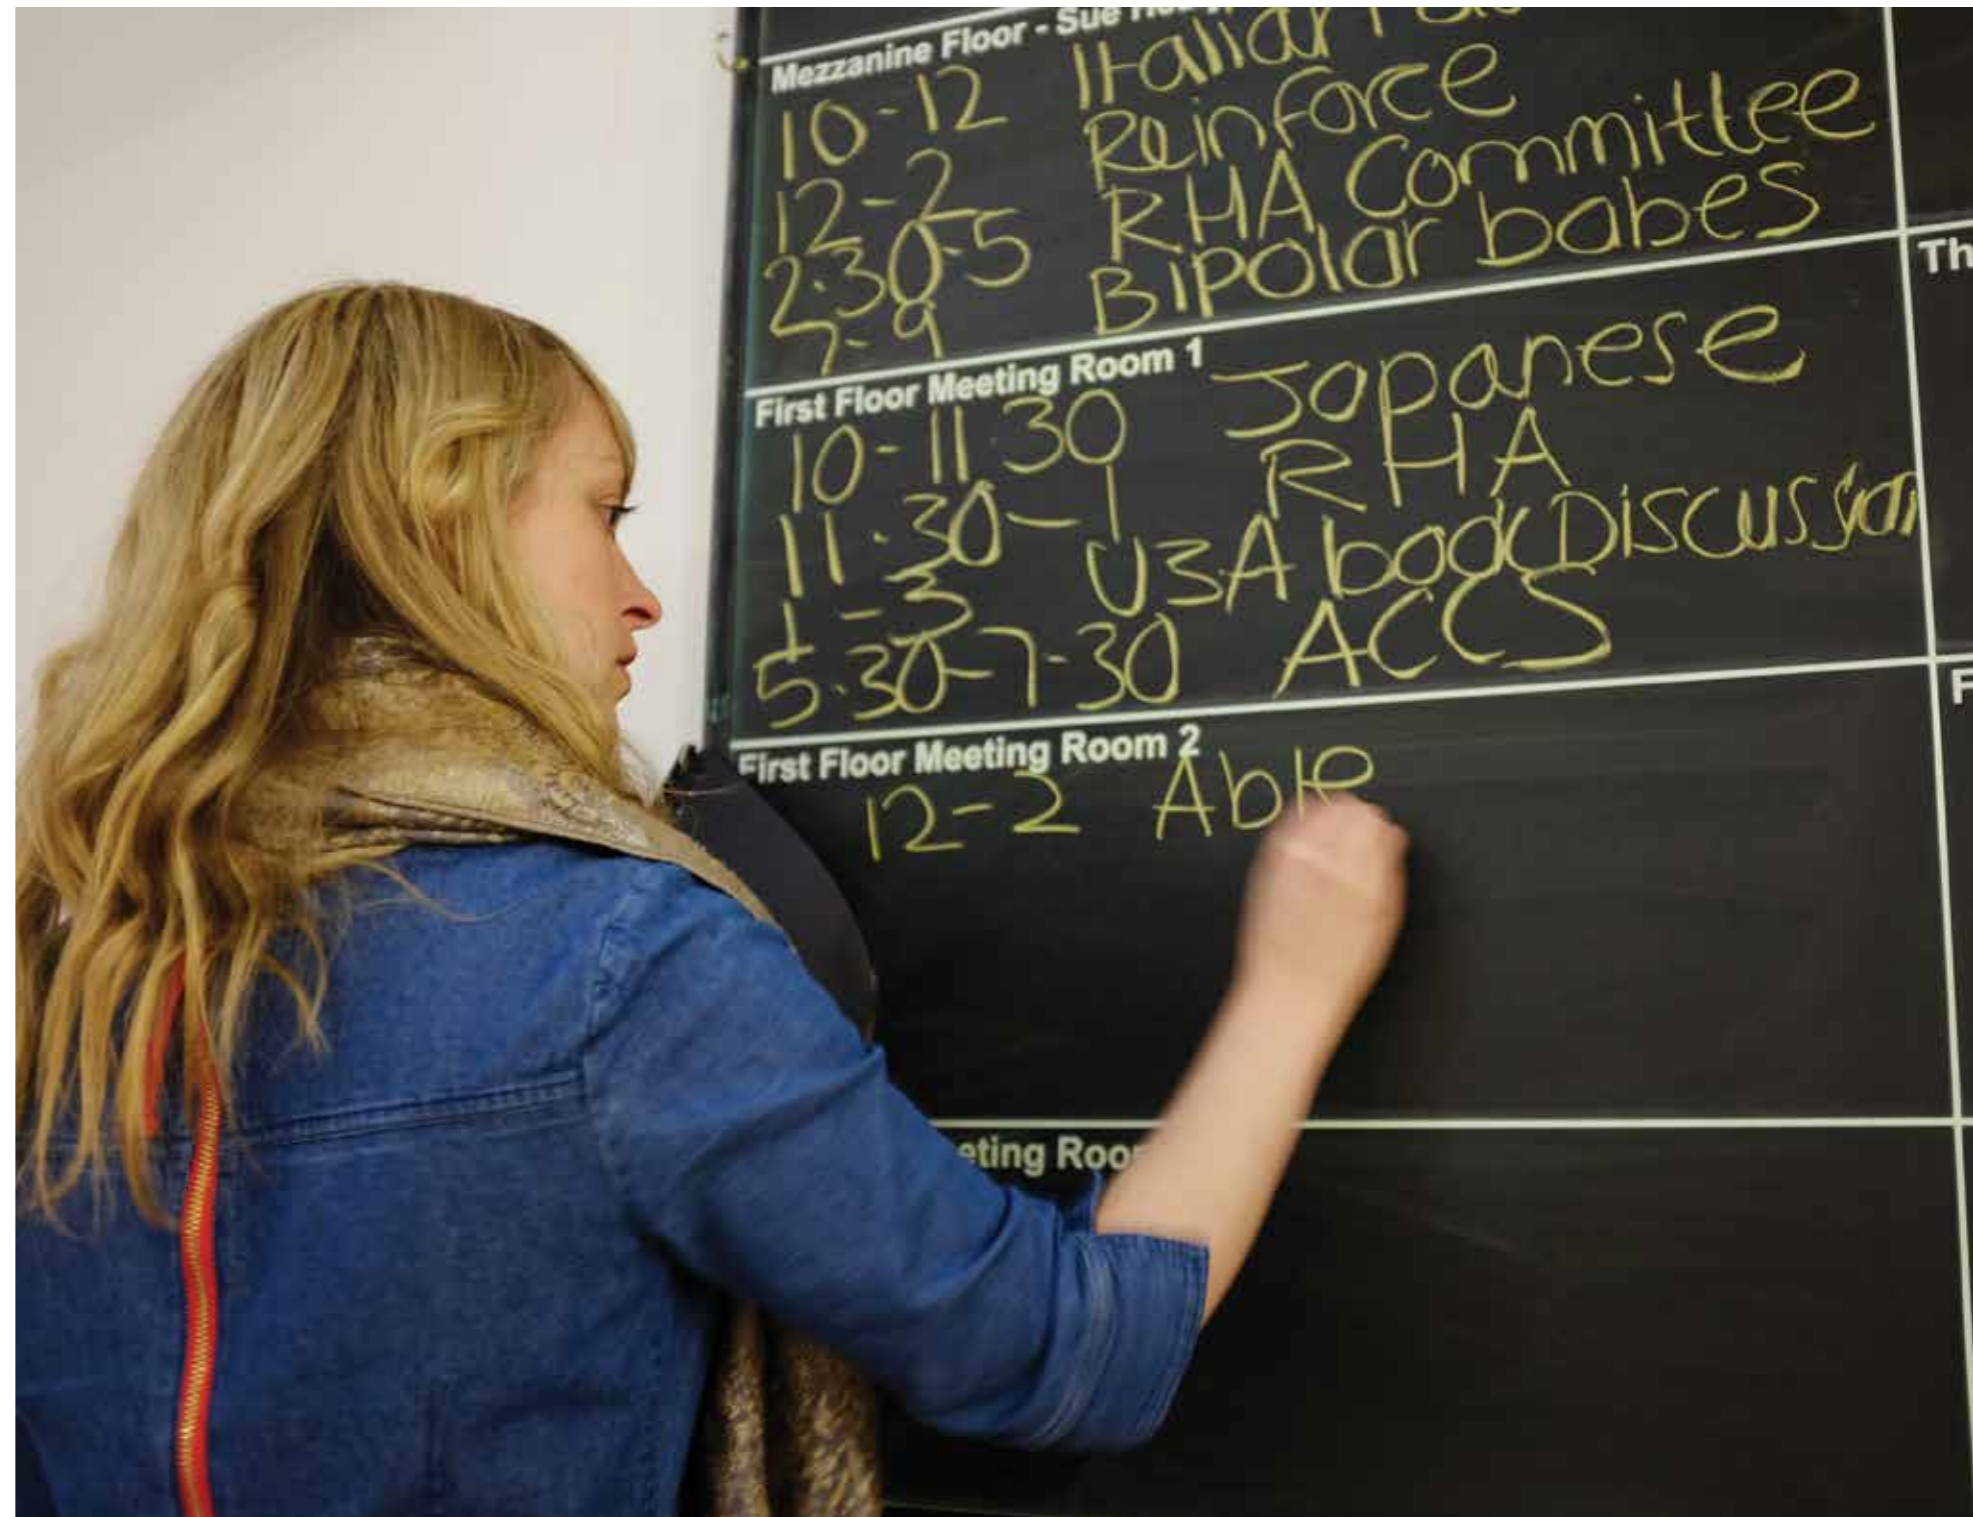 Mezzanine Floor - Sue
10-12 Italian
12-2 Reinforce
2.30-5 RHA Committee
7-9 Bipolar babes
First Floor Meeting Room 1
10-11 30 Japanese
11.30-1 RHA
1-3 U3A book Discussion
5.30-7-30 ACCS
Th
First Floor Meeting Room 2
F
12-2 Able
eting Roo